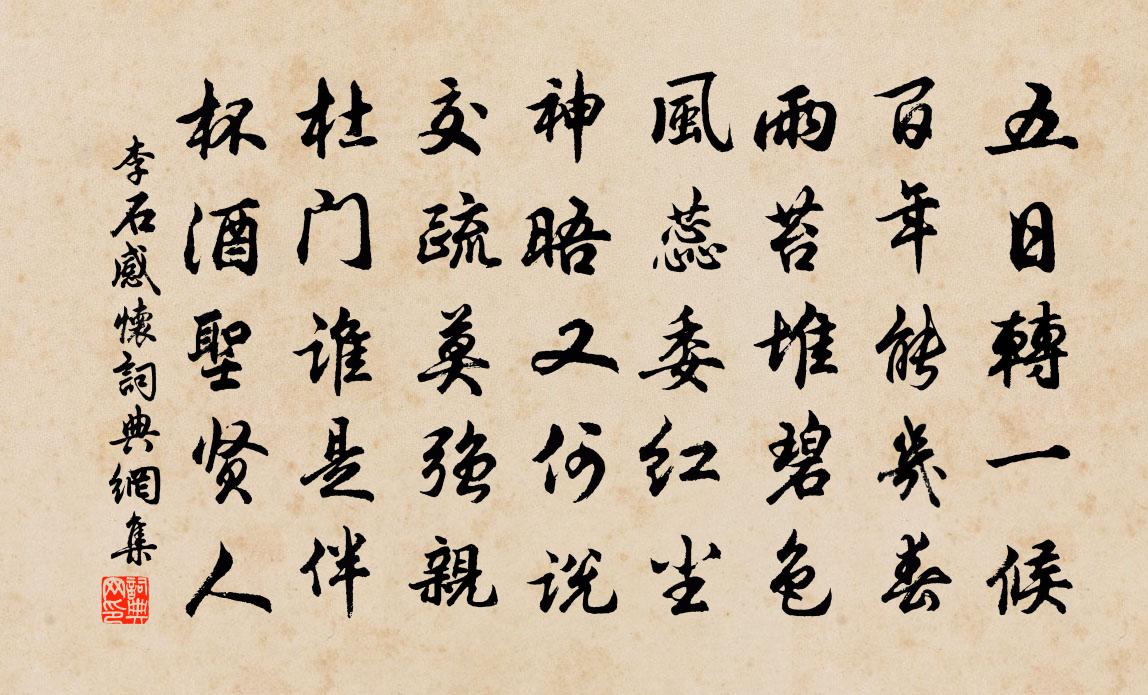 五日轉一候
百年能幾春
雨苔堆碧色
風蕊委红尘
神晤又何说
交疏莫强親
杜门谁是伴
杯酒聖贤人
李石感懷詞典網集
詞典网印